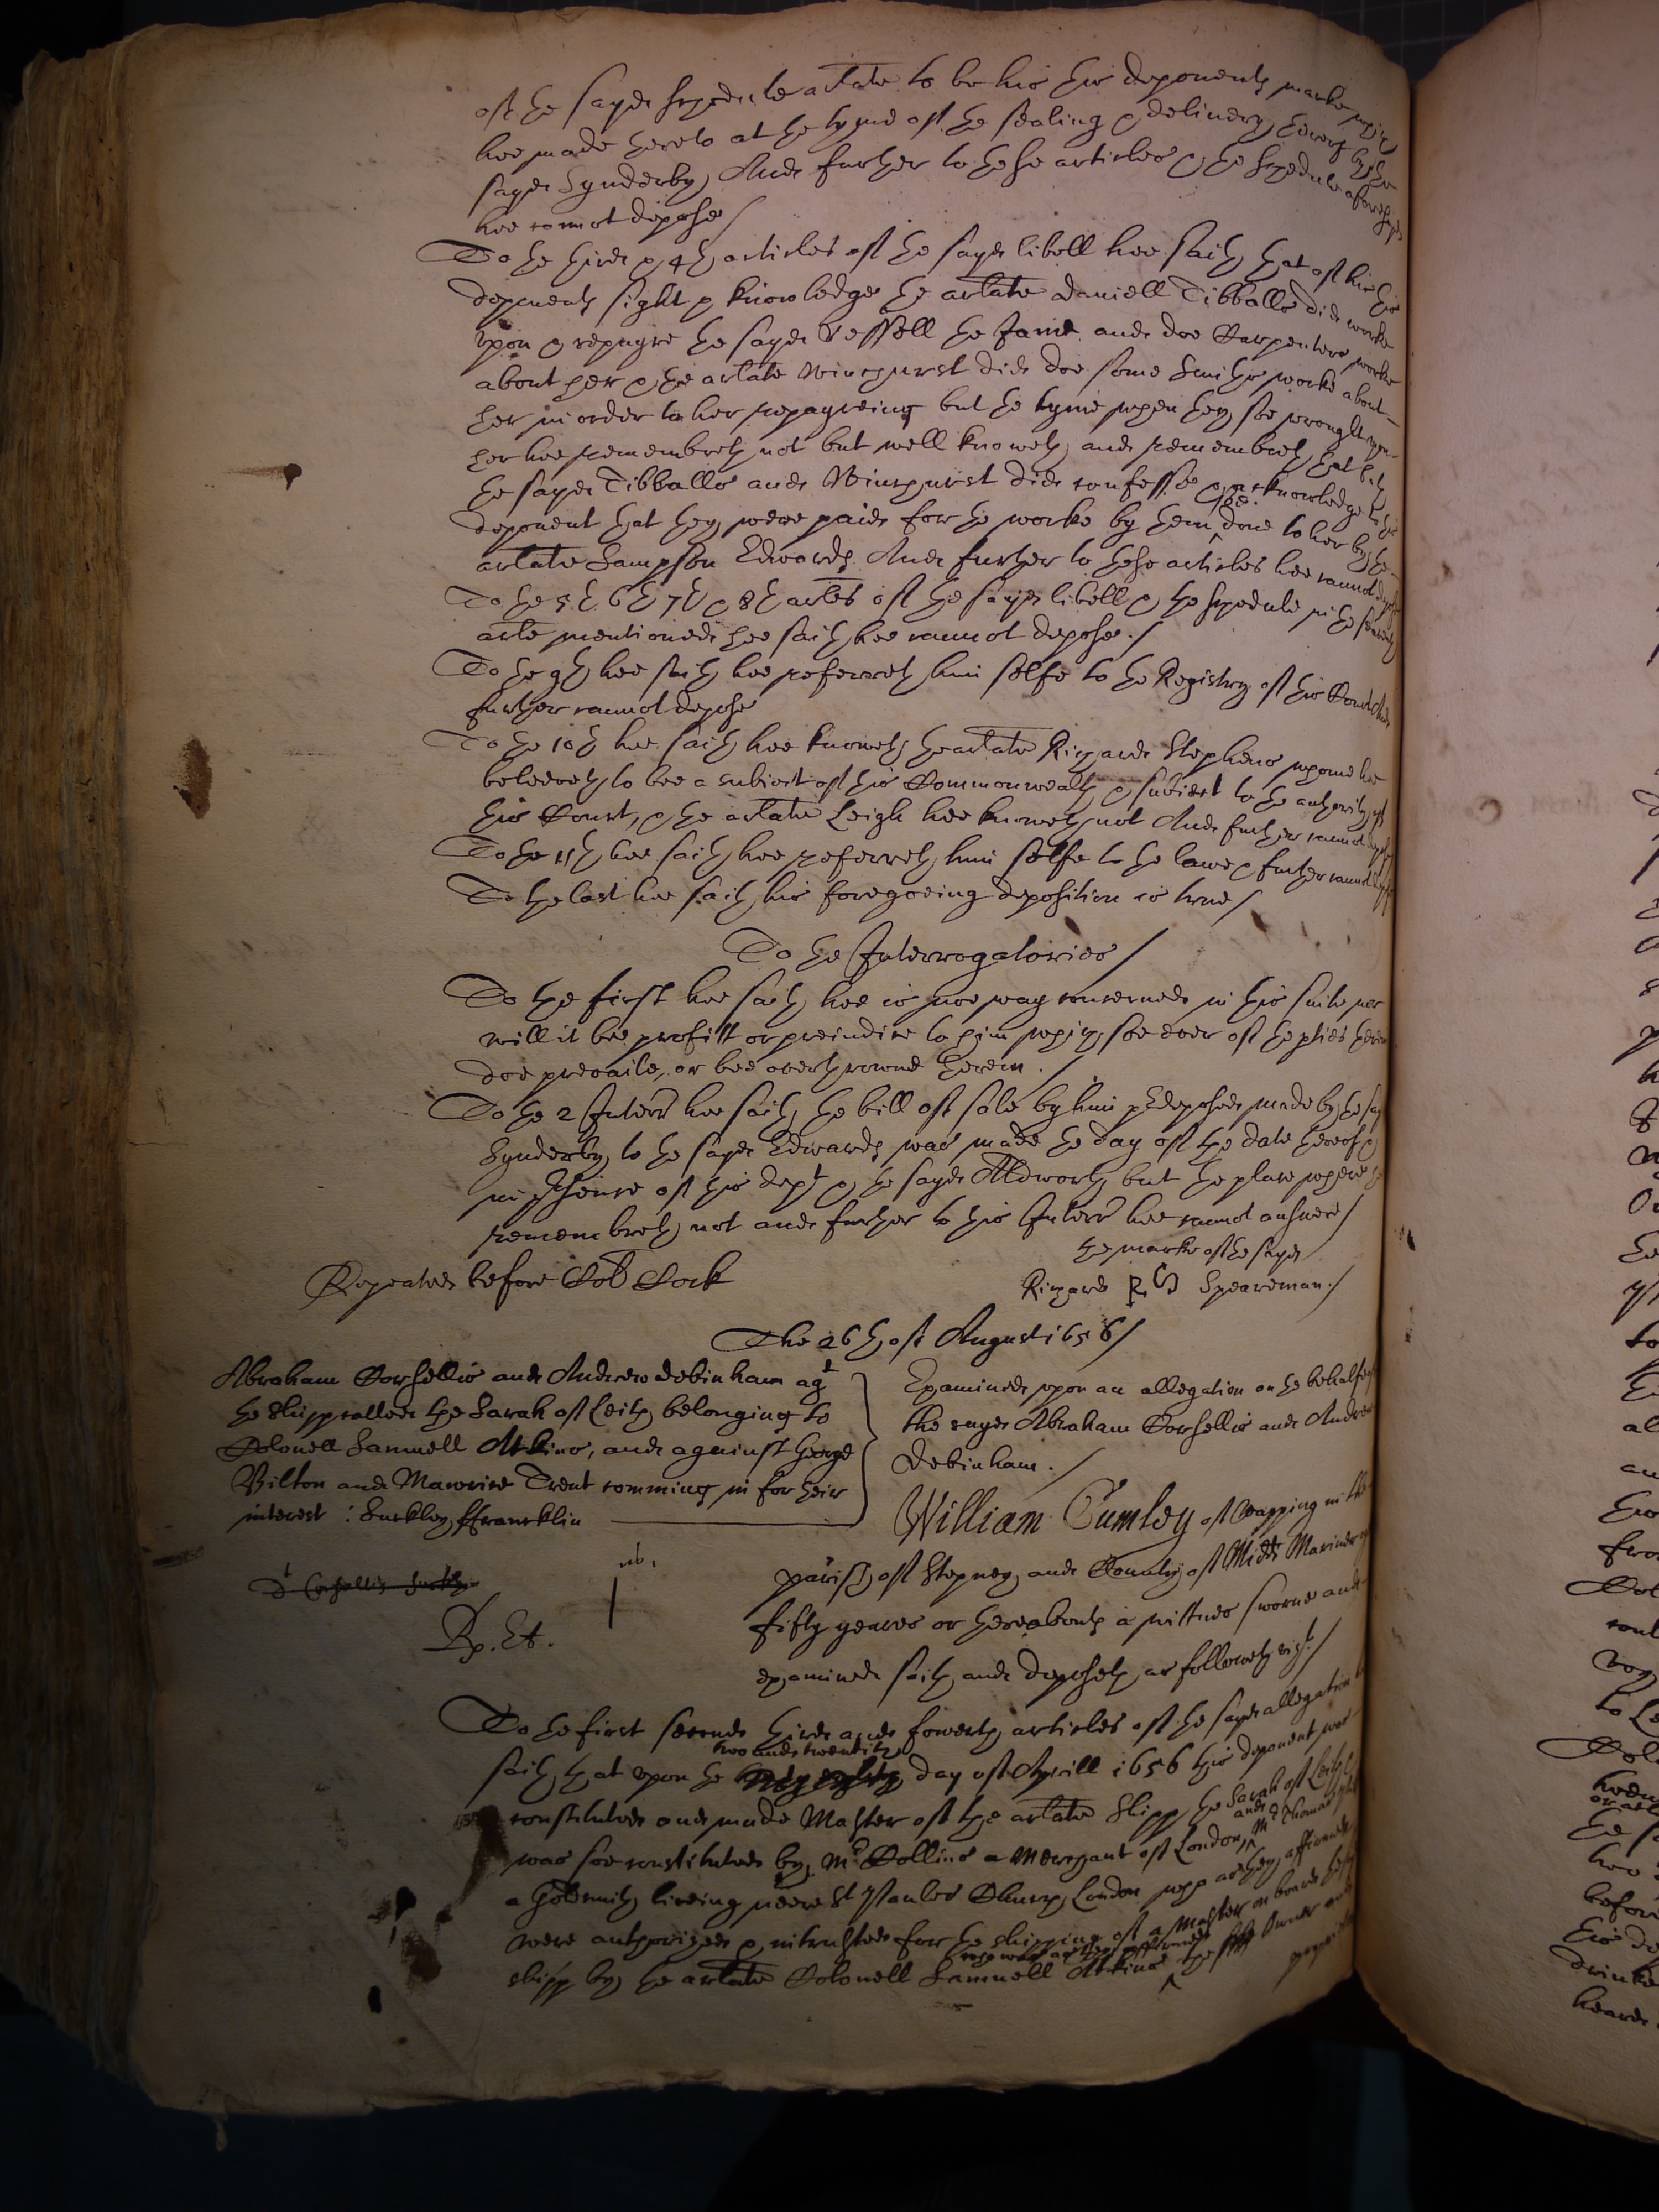 of the sayd schedule arlate to be his this deponents marke which
hee made thereto at the tyme of the sealing & delivery thereof by the
sayd Synderby, And further to these articles & the schedule aforesayd
hee cannot depose /
To the third & 4th articles of the sayd libell hee saith that of his this
deponents sight & knowledge the arlate Daniell Tibballs did worke
upon & repayre the sayd vessell the Jane and doe Carpenters worke
about her & the arlate Winchurst did doe some Smiths worke about
her in order to her repayreing but the tyme when they soe wrought upon
her hee remembreth not but well knoweth and remembreth that both
the sayd Tibballs and Winchurst did confesse & acknowledge to this
deponent that they were paid for the worke by them soe done to her by the
arlate Sampson Edwards And further to these articles hee cannot depose
To the 5th 6th 7th & 8th arles of the sayd libell & the schedule in the seaventh
arle mentioned hee saith hee cannot depose. /
To the 9th hee saith hee referreth him selfe to the Registry of this Court And
further cannot depose
To the 10th hee saith hee knoweth the arlate Richard Stephens whome hee
beleeveth to bee a subiect of this Commonwealth & subiect to the authority of
this Court, & the arlate Leigh hee knoweth not And further cannot depose
To the 11th hee saith hee referreth him selfe to the lawe & further cannot depose
To the last hee saith his foregoeing deposition is true /
To the Interrogatories /
To the first hee saith hee is noe way concerned in this suite nor
will it bee profitt or preiudice to him which soe ever of the pties herein
doe prevaile, or bee overthrowne therein. /
To the 2 Interr hee saith the bill of sale by him pdeposed made by the sayd
Synderby to the sayd Edwards was made the day of the date thereof &
in psence of this dept & the sayd Aldworth but the place where hee
remembreth not and further to this Interr hee cannot answere /
the marke of the sayd
Repeated before Col Cock
Richard RS Speareman. /
The 26th of August 1656 /
Abraham Corsellis and Andrew Debinham agt
the Shipp called the Sarah of Leith belonging to
Colonell Samuell Atkins, and against George
Bilton and Maurice Trent comming in for their
interest : Suckley ffrancklin
Examined upon an allegation on the behalfe of
the sayd Abraham Corsellis and Andrew
Debinham. /
dt Corsellis Suckley
Rp. Et.
1
William Cumley of Wapping in the
parish of Stepney and County of Midds Mariner aged
fifty yeares or thereabouts a wittnes sworne and
examined saith and deposeth as followeth vizt. /
To the first second third and fowerth articles of the sayd allegation hee
saith that upon the two and twentith day of Aprill 1656 this deponent was
constituted and made Master of the arlate Shipp the Sarah of Leith &
was soe constituted by Mr Collins a Merchant of London and Mr Thomas
a Goldsmith liveing neere St Paules Church London who as they affirmed
were authorized & intrusted for the shipping of a Master on board the sayd
shipp by the arlate Colonell Samuell Atkins who was as they affirmed the sole Owner and